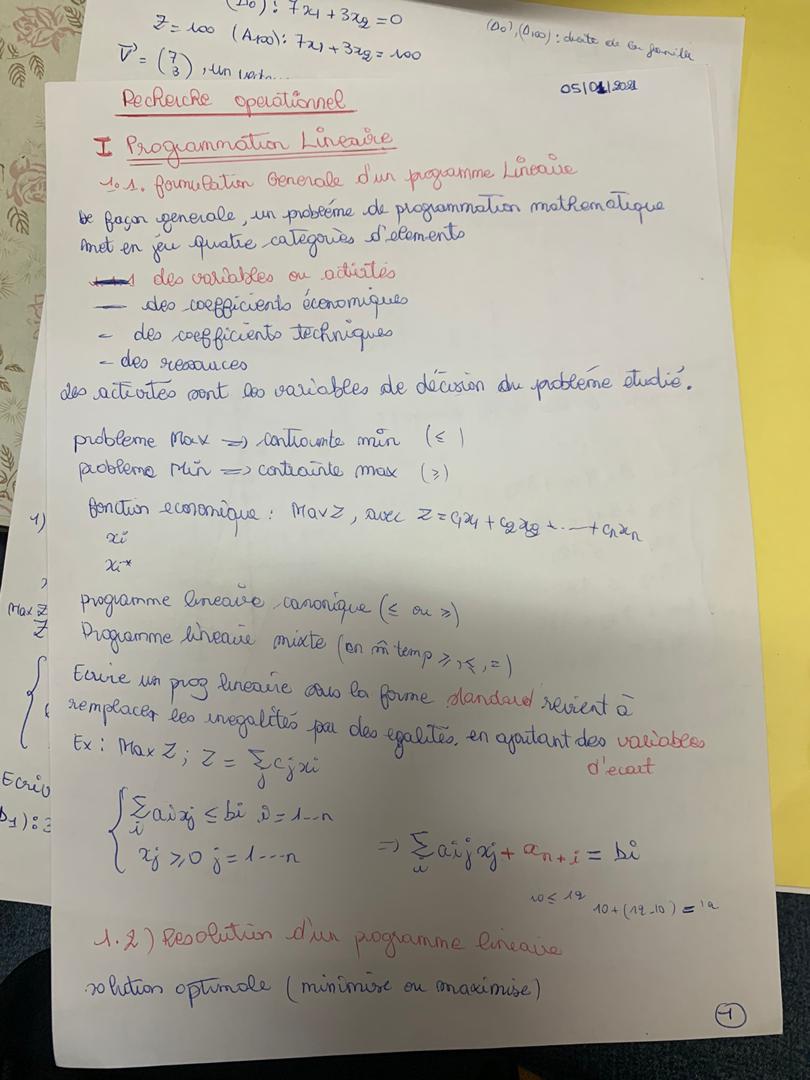 (Δ0): 7x1 + 3x2 = 0
Z = 100 (Δ100): 7x1 + 3x2 = 100
V = (7 3), un
(Δ0), (Δ100): droite de la famille
05/01/2021
Recherche operationnel
I Programmation Lineaire
1.1. formulation Generale d'un programme Lineaire
De façon generale, un probléme de programmation mathematique
met en jeu quatre categories d'elements
des variables ou activités
— des coefficients économiques
- des coefficients techniques
- des ressources
des activités sont les variables de décision du probléme etudié.
probleme Max => contrainte min (≤)
probleme Min => contrainte max (≥)
fonction economique : Max Z, avec Z = c1x1 + c2x2 + ... + cnxn
xi
xi*
programme lineaire canonique (≤ ou ≥)
Programme lineaire mixte (en m̂ temp ≥, ≤, =)
Ecrire un prog lineaire sous la forme standard revient à
remplacer les inegalités par des egalités, en ajoutant des variables
d'ecart
Ex : Max Z ; Z = ∑j cjxi
{ ∑i aixj ≤ bi i = 1...n
xj ≥ 0 j = 1....n
=> ∑i aijxj + xn+i = bi
10 ≤ 12
10 + (12-10) = 12
1.2) Resolution d'un programme lineaire
solution optimale (minimise ou maximise)
1
1)
Max Z
Z
{
Ecriv
D1) : 3